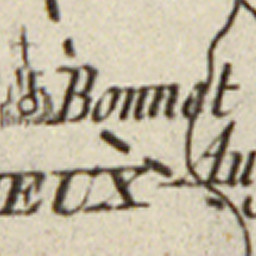 Bonnat
EUX
Au